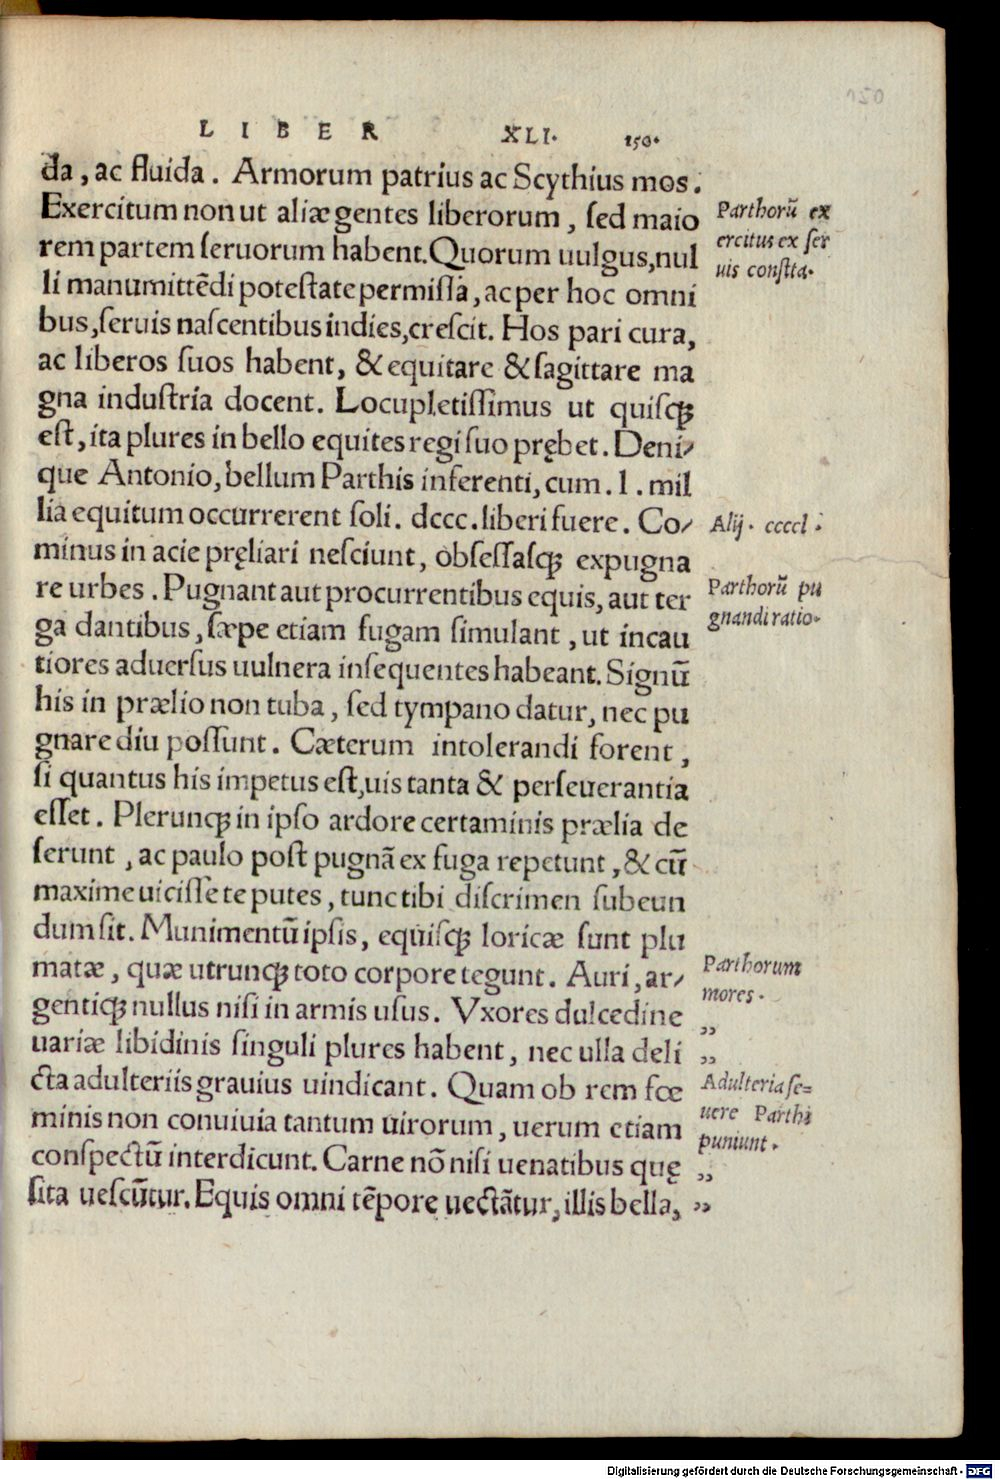 150
LIBER XLI. 150.
da, ac fluida. Armorum patrius ac Scythius mos.
Exercitum non ut aliæ gentes liberorum, ſed maio
rem partem ſeruorum habent. Quorum uulgus, nul
li manumittẽdi poteſtate permiſſa, ac per hoc omni
bus, ſeruis naſcentibus indies, creſcit. Hos pari cura,
ac liberos ſuos habent, & equitare & ſagittare ma
gna induſtria docent. Locupletiſſimus ut quiſqꝫ
eſt, ita plures in bello equites regi ſuo prębet. Deni-
que Antonio, bellum Parthis inferenti, cum .l. mil
lia equitum occurrerent ſoli. dccc. liberi fuere. Co-
minus in acie pręliari neſciunt, obſeſſaſqꝫ expugna
re urbes. Pugnant aut procurrentibus equis, aut ter
ga dantibus, ſæpe etiam fugam ſimulant, ut incau
tiores aduerſus uulnera inſequentes habeant. Signũ
his in prælio non tuba, ſed tympano datur, nec pu
gnare diu poſſunt. Cæterum intolerandi forent,
ſi quantus his impetus eſt, uis tanta & perſeuerantia
eſſet. Plerunqꝫ in ipſo ardore certaminis prælia de
ſerunt, ac paulo poſt pugnã ex fuga repetunt, & cũ
maxime uiciſſe te putes, tunc tibi diſcrimen ſubeun
dum ſit. Munimentũ ipſis, equiſqꝫ loricæ ſunt plu
matæ, quæ utrunqꝫ toto corpore tegunt. Auri, ar-
gentiqꝫ nullus niſi in armis uſus. Vxores dulcedine
uariæ libidinis ſinguli plures habent, nec ulla deli
cta adulteriis grauius uindicant. Quam ob rem fœ
minis non conuiuia tantum uirorum, uerum etiam
conſpectũ interdicunt. Carne nõ niſi uenatibus quę
ſita ueſcũtur. Equis omni tẽpore uectãtur, illis bella,
Parthorũ ex
ercitus ex ſer
uis conſtta.
Alij. ccccl.
Parthorũ pu
gnandi ratio.
Parthorum
mores.
„
„
Adulteria ſe=
uere Parthi
puniunt.
„
„
Digitalisierung gefördert durch die Deutsche Forschungsgemeinschaft - DFG